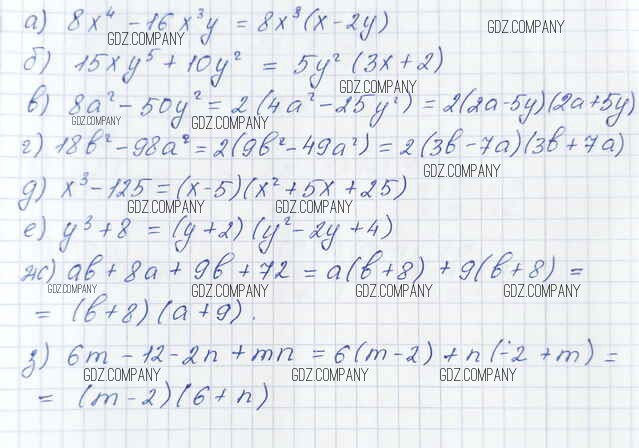 а) 8x⁴ - 16x³y = 8x³(x - 2y)
GDZ.COMPANY GDZ.COMPANY
б) 15xy⁵ + 10y² = 5y²(3x + 2)
GDZ.COMPANY
в) 8a² - 50y² = 2(4a² - 25y²) = 2(2a - 5y)(2a + 5y)
GDZ.COMPANY GDZ.COMPANY
г) 18b² - 98a² = 2(9b² - 49a²) = 2(3b - 7a)(3b + 7a)
GDZ.COMPANY
д) x³ - 125 = (x - 5)(x² + 5x + 25)
GDZ.COMPANY GDZ.COMPANY
е) y³ + 8 = (y + 2)(y² - 2y + 4)
ж) ab + 8a + 9b + 72 = a(b + 8) + 9(b + 8) =
GDZ.COMPANY GDZ.COMPANY GDZ.COMPANY GDZ.COMPANY
= (b + 8)(a + 9).
з) 6m - 12 - 2n + mn = 6(m - 2) + n(-2 + m) =
GDZ.COMPANY GDZ.COMPANY GDZ.COMPANY
= (m - 2)(6 + n)